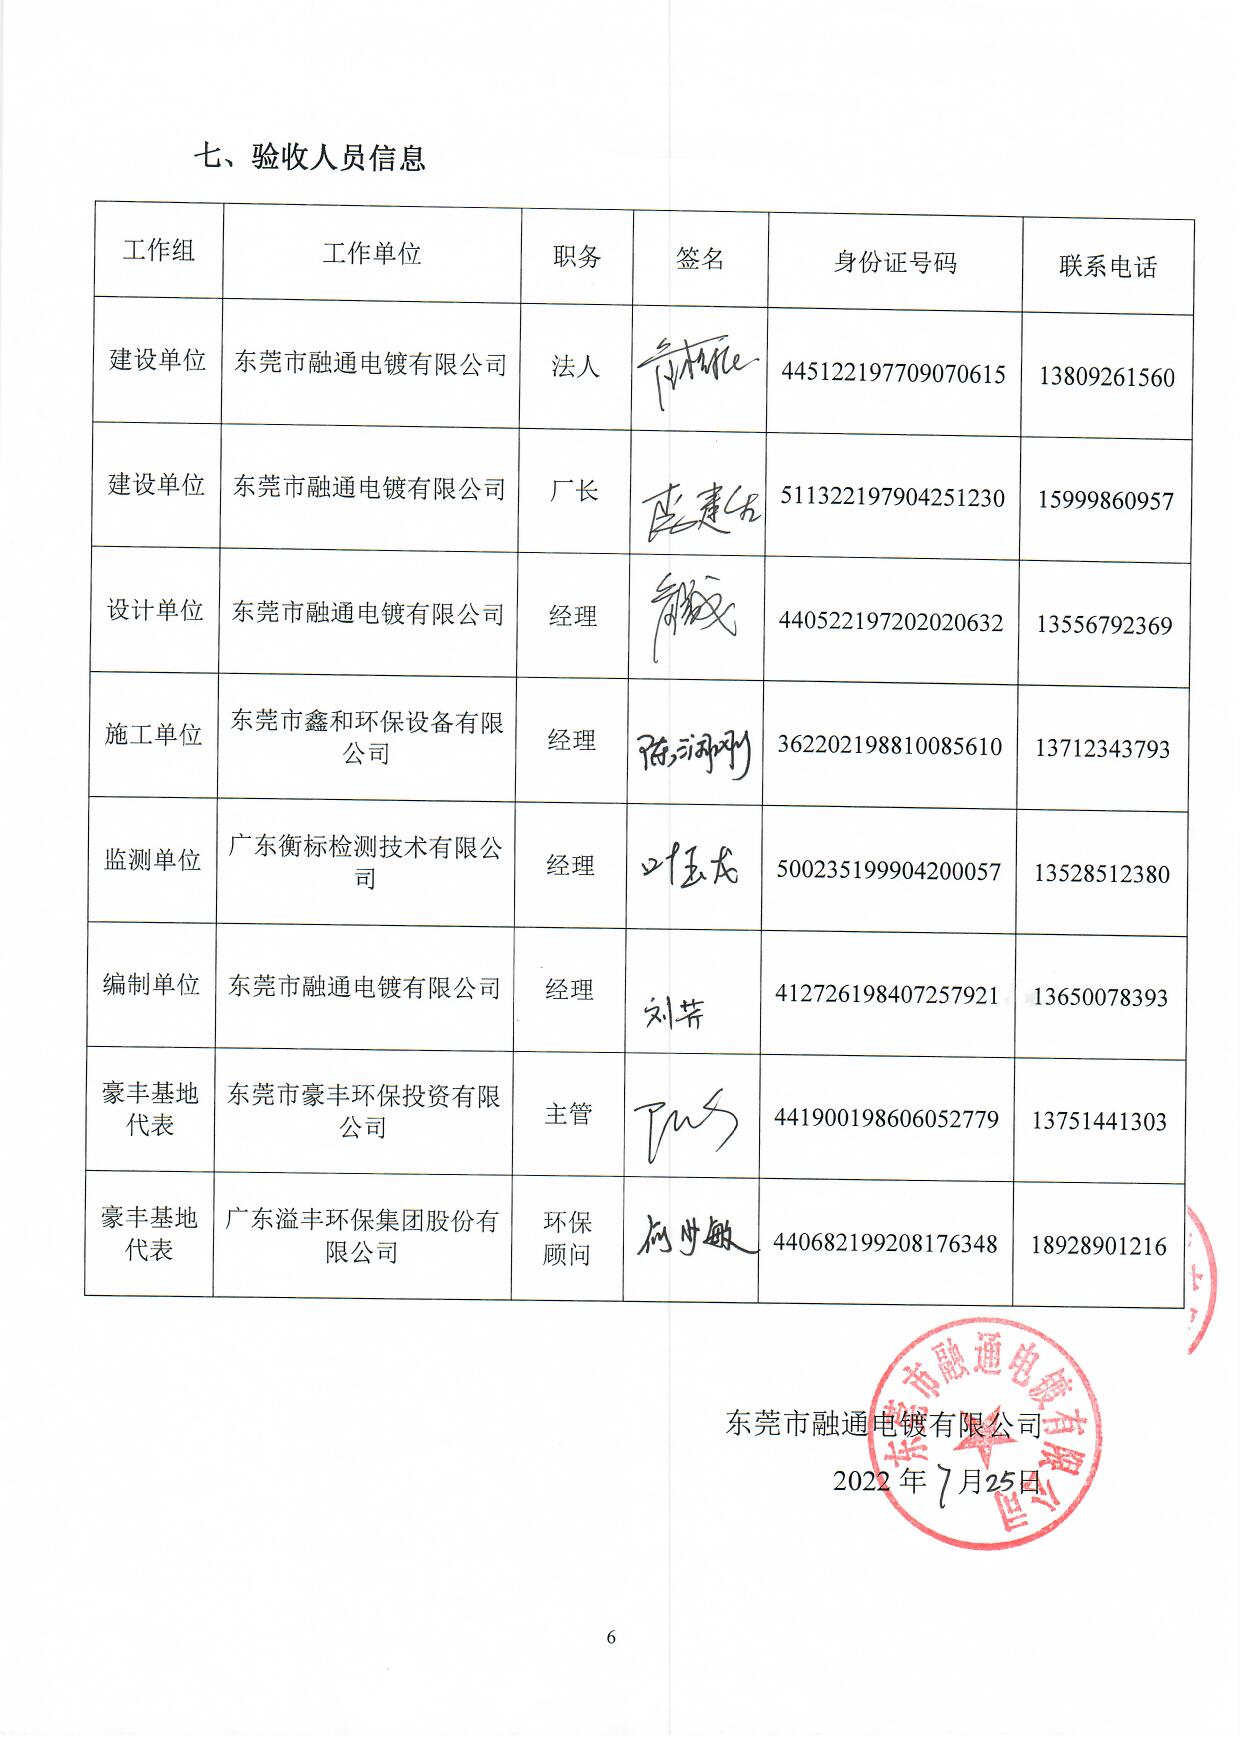 七、验收人员信息
工作组 工作单位 职务 签名 身份证号码 联系电话
建设单位 东莞市融通电镀有限公司 法人 445122197709070615 13809261560
建设单位 东莞市融通电镀有限公司 厂长 511322197904251230 15999860957
设计单位 东莞市融通电镀有限公司 经理 440522197202020632 13556792369
施工单位 东莞市鑫和环保设备有限
公司 经理 陈润刚 362202198810085610 13712343793
监测单位 广东衡标检测技术有限公
司 经理 叶玉龙 500235199904200057 13528512380
编制单位 东莞市融通电镀有限公司 经理 刘芹 412726198407257921 13650078393
豪丰基地
代表 东莞市豪丰环保投资有限
公司 主管 441900198606052779 13751441303
豪丰基地
代表 广东溢丰环保集团股份有
限公司 环保
顾问 何少敏 440682199208176348 18928901216
东莞市融通电镀有限公司
东莞市融通电镀有限公司
2022年7月25日
6